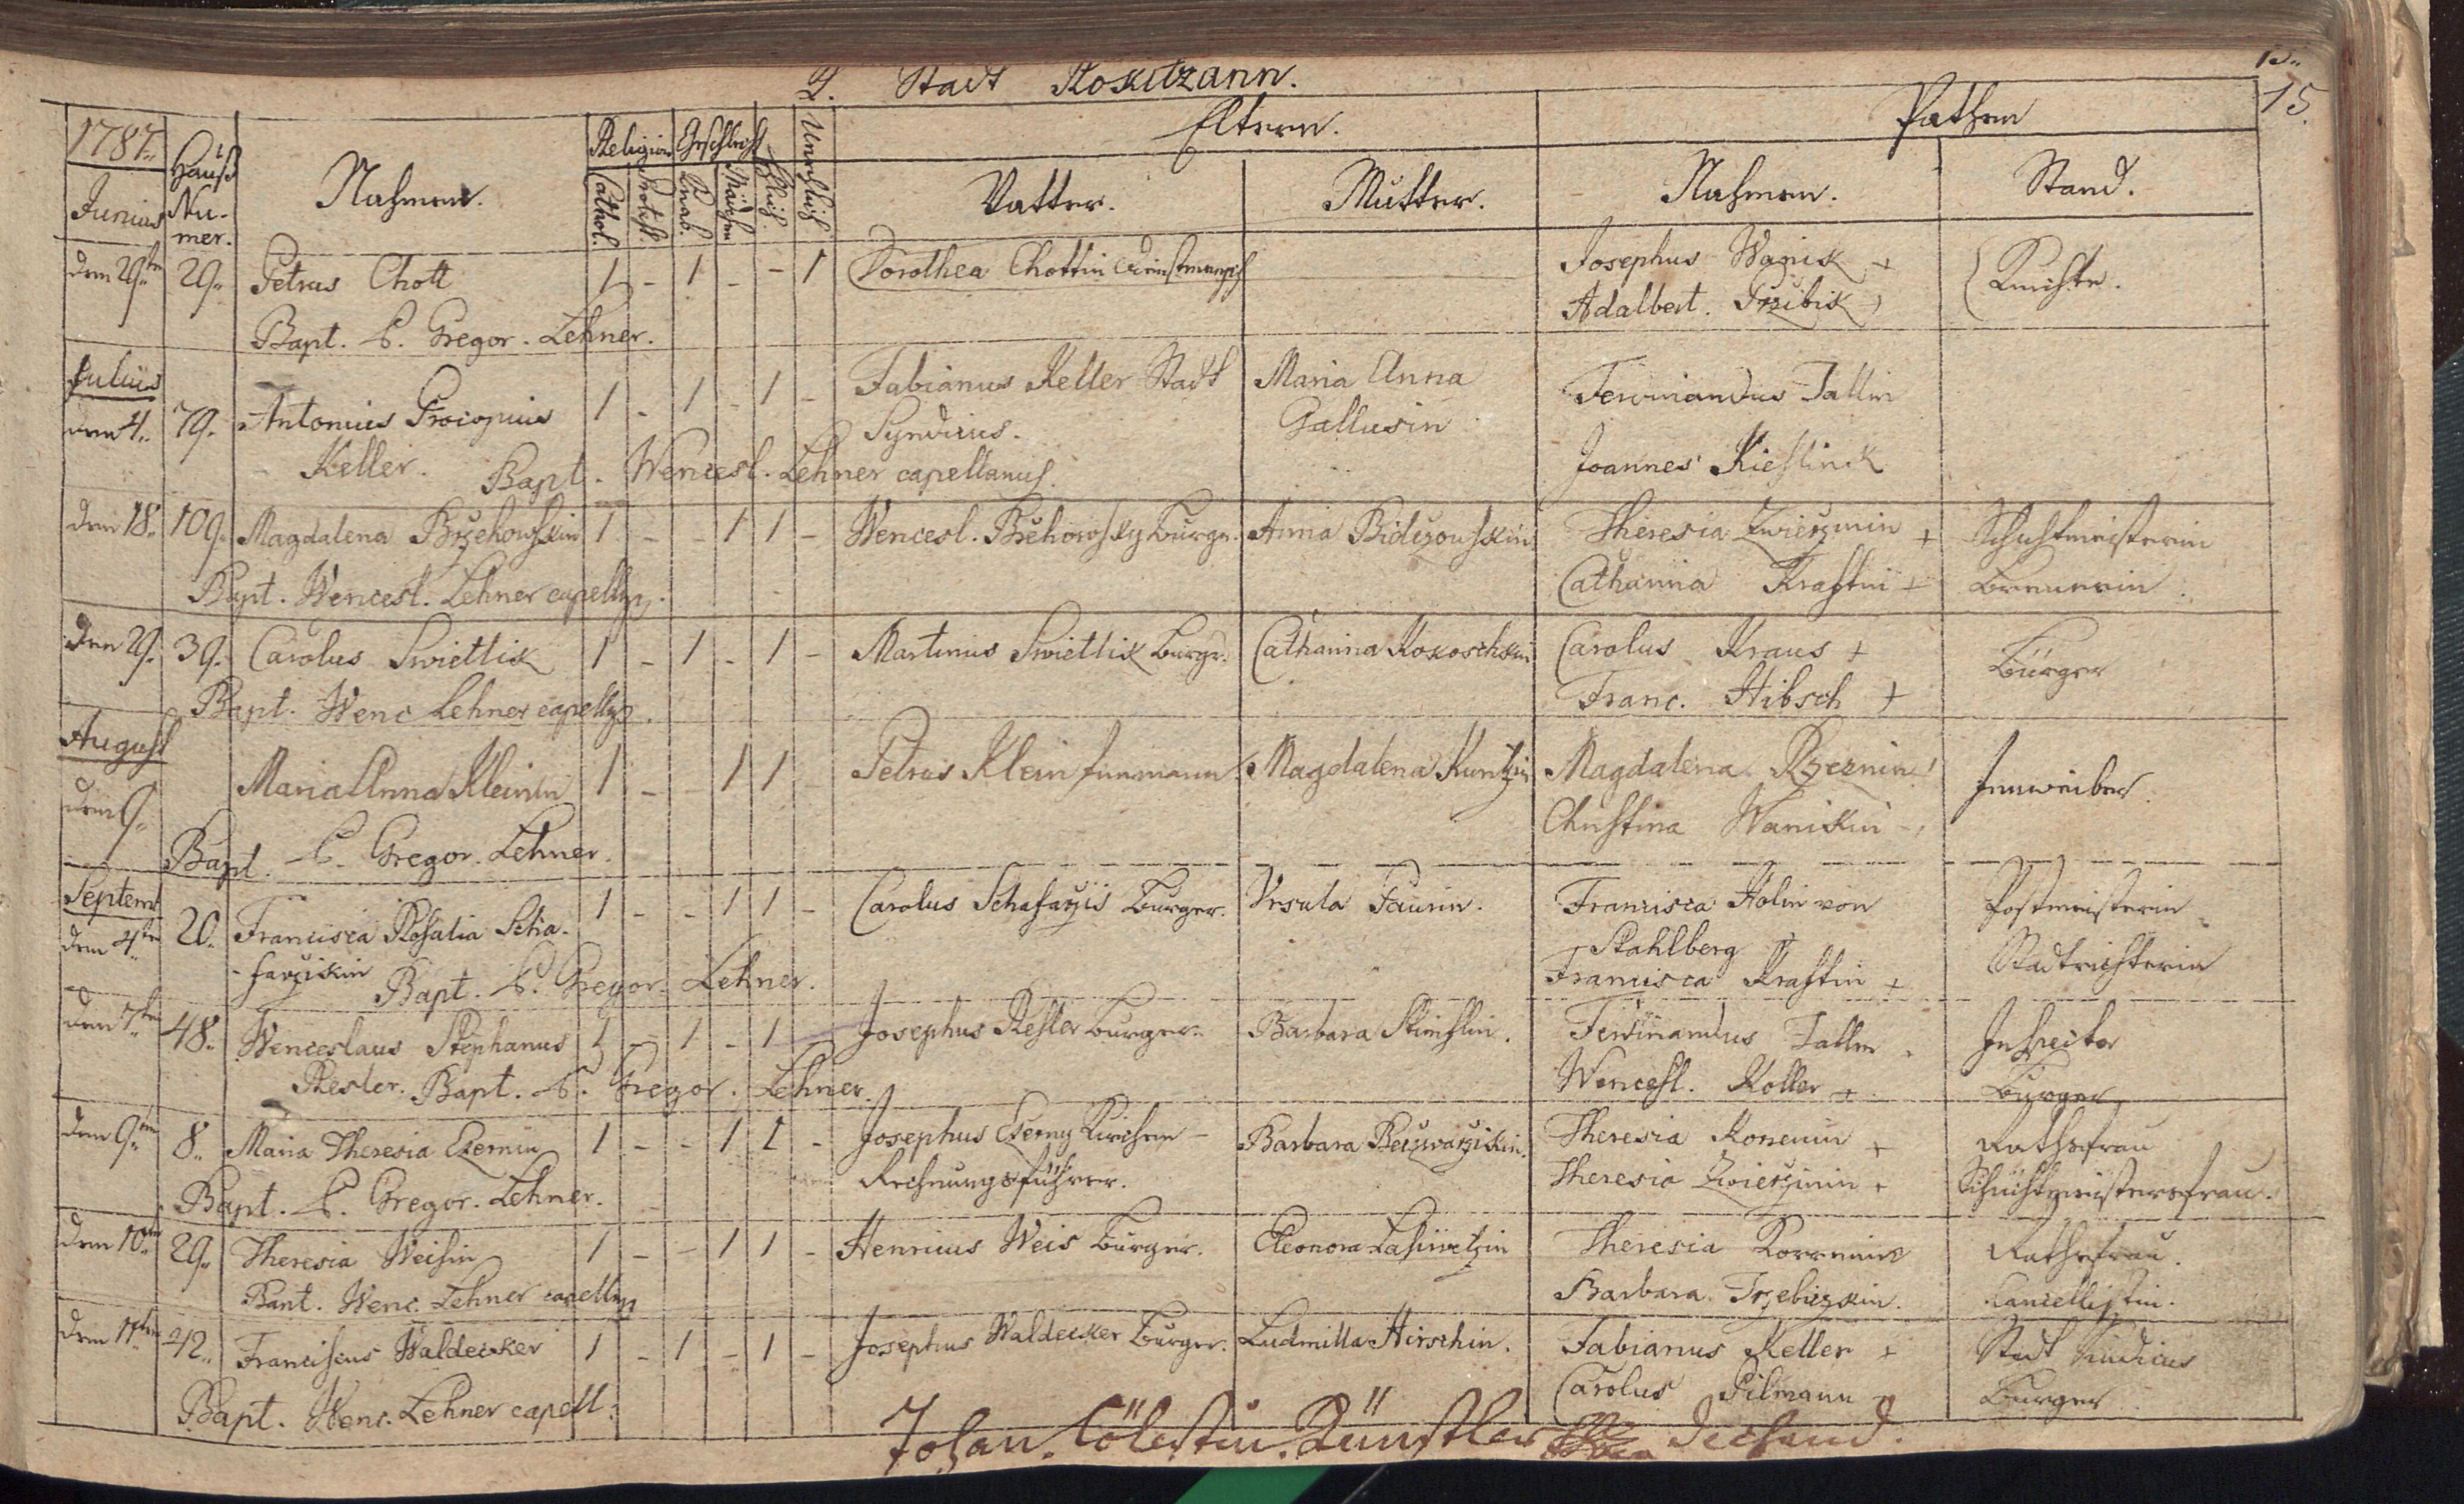 2. Stadt Rokitzann.
15.
15.
1787.
Hauß Nu-mer.
Nahmen.
Religion
Geschlecht
Ehlich.
Unehlich
Eltern.
Pathen
Junius
Cathol.
Protest.
Knab.
Mädchen
Vatter.
Mutter.
Nahmen.
Stand.
den 29ten 29. Petrus Chott 1 - 1 - - 1 Dorothea Chottin Josephus Wanick +
Adalbert. Przibik + Knechte.
Bapt. P. Gregor. Lehner.
Julius
den 4. 79. Antonius Procopius 1 - 1 - 1 - Fabianus Keller Stadt Maria Anna Ferdinandus Tallin
Keller. Syndicus. Gallusin Joannes Kieslinck
Bapt. Wencesl. Lehner capellanus.
den 18. 109. Magdalena Brzehowskin 1 - - 1 1 - Wencesl. Bržehorosky Burger. Anna Theresia Zwierzinin + Schichtmeisterin
Catharina Kraftin + Breuerin.
Bapt. Wencesl. Lehner
den 29. 39. Carolus Swietlik 1 - 1 - 1 - Martinus Swietlik Burgr. Catharina Kokoschkin Carolus Kraus + Bürger
Franc. Hibsch +
Bapt. Wenc Lehner
August
den 9. Maria Anna Kleinin 1 - 1 1 Petrus Klein Innmann. Magdalena Kuntzin Magdalena Rzeznin Innweiber.
Christina Wanikin
Bapt. P. Gregor. Lehner.
Septem
den 4ten 20. Francisca Rosalia Scha- 1 - - 1 1 - Carolus Schafarzis Burger. Ursula Paurin. Francisca Holin von Postmeisterin
-farzikin Stahlberg +
Bapt. P. Gregor. Lehner. Francisca Kraftin + Stadtrichterin
den 7ten 48. Wenceslaus Stephanus 1 - 1 - 1 Josephus Resler Burger. Barbara Ferdinandus Tallin Inspector
Resler. Bapt. P. Gregor. Lehner. Wencesl. Koller + Burger
den 9ten 8. Maria Theresia Czernin 1 - - 1 1 - Josephus Czerny Kirchen- Barbara Beczwarzikin. Theresia Korenin + Rathsfrau
Rechnungsführer. Theresia Zwierzinin + Schichtmeistersfrau.
Bapt. P. Gregor. Lehner.
den 10ten 29. Theresia Weisin 1 - - 1 1 - Henricus Weis Burger. Eleonora Theresia Korrenin Rathsfrau.
Bapt. Wenc. Lehner Barbara Trzebiczkin. Cancellistin.
den 11ten 42. Franciscus Waldecker 1 - 1 - 1 - Josephus Waldecker Burger. Ludmilla Hirschin. Fabianus Keller + Stadt Sindicus
Carolus Pilmann + Burger
Bapt. Wenc. Lehner capell:
Johan. Cölestin. Künstler Dechand.